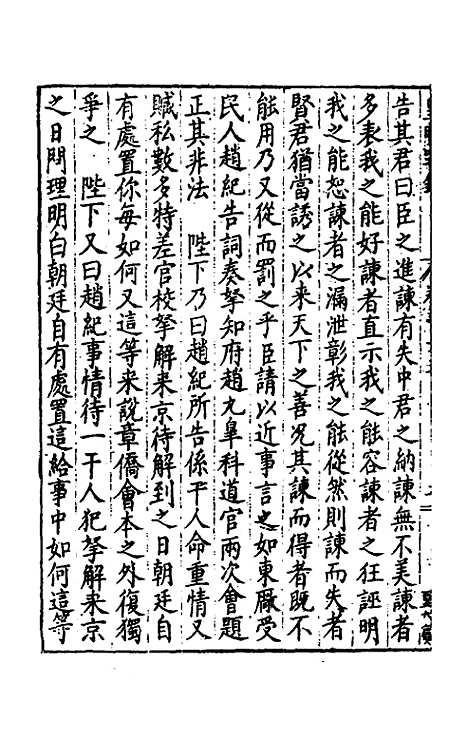 告其君曰臣之進諫有失中君之納諫無不美諫者
多表我之能好諫者直示我之能容諫者之狂誣明
我之能恕諫者之漏泄彰我之能從然則諫而失者
賢君猶當誘之以来天下之善况其諫而得者既不
能用乃又從而罰之乎臣請以近事言之如東厰受
民人趙紀告詞奏拏知府趙九臯科道官兩次會題
正其非法　陛下乃曰趙紀所告係干人命重情又
贓私數多特差官校拏解来京待解到之日朝廷自
有處置你每如何又這等来說章僑會本之外復獨
爭之　陛下又曰趙紀事情待一干人犯拏解来京
之日問理明白朝廷自有處置這給事中如何這等